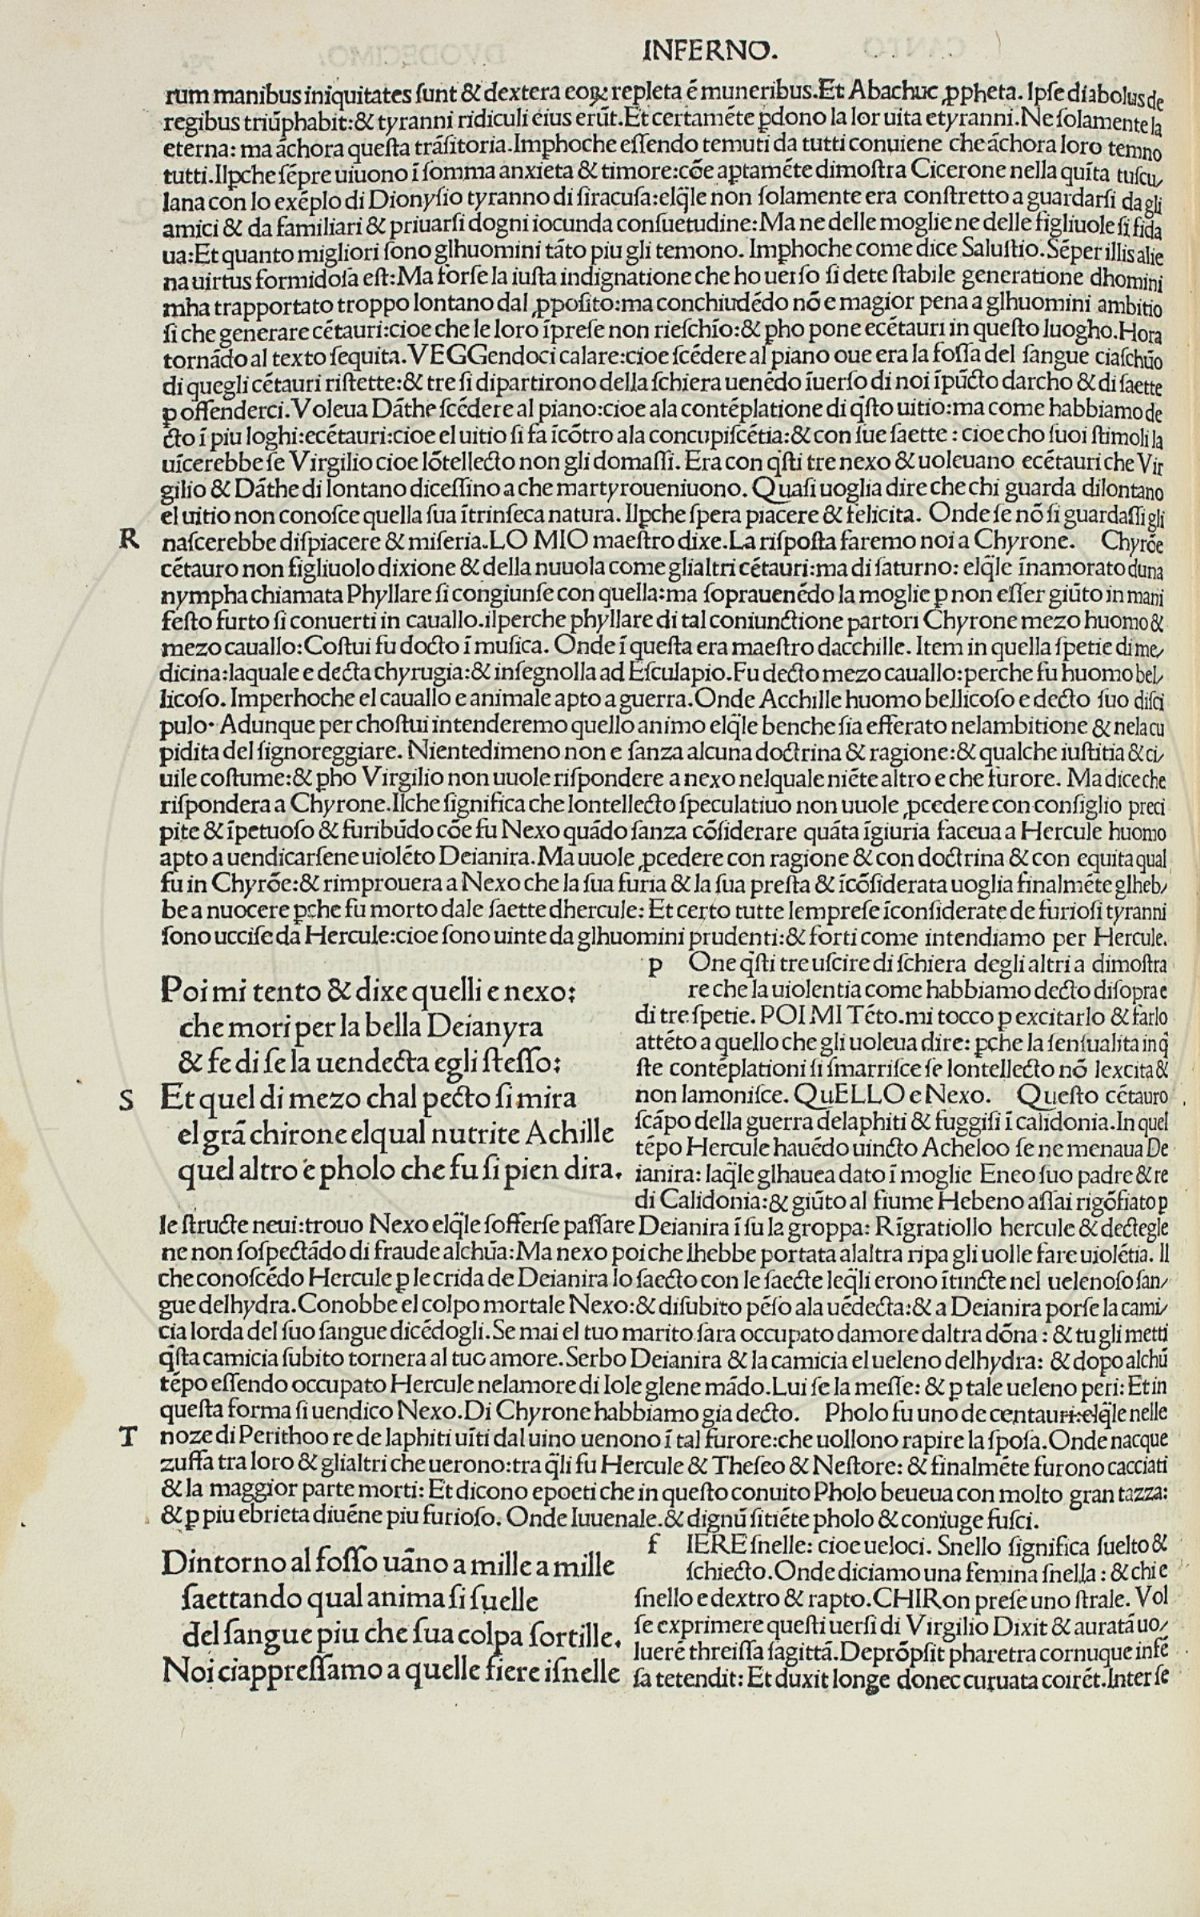 INFERNO.
rum manibus iniquitates ſunt & dextera eoꝝ repleta ē muneribus.Et Abachuc ꝓpheta. Ipſe diabolus de
regibus triūphabit:& tyranni ridiculi eius erūt.Et certamēte ꝑdono la lor uita etyranni.Ne ſolamente la
eterna: ma āchora queſta trāſitoria.Imphoche eſſendo temuti da tutti conuiene che āchora loro temno
tutti.Ilꝑche ſēpre uiuono ī ſomma anxieta & timore:cōe aptamēte dimoſtra Cicerone nella quīta tuſcu/
lana con lo exēplo di Dionyſio tyranno di ſiracuſa:elq̄le non ſolamente era conſtretto a guardarſi da gli
amici & da familiari & priuarſi dogni iocunda conſuetudine:Ma ne delle moglie ne delle figliuole ſi fida
ua:Et quanto migliori ſono glhuomini tāto piu gli temono. Imphoche come dice Saluſtio.Sēper illis alie
na uirtus formidoſa eſt:Ma forſe la iuſta indignatione che ho uerſo ſi dete ſtabile generatione dhomini
mha trapportato troppo lontano dal ꝓpoſito:ma conchiudēdo nō e magior pena a glhuomini ambitio
ſi che generare cētauri:cioe che le loro īpreſe non rieſchīo:& pho pone ecētauri in queſto luogho.Hora
tornādo al texto ſequita.VEGGendoci calare:cioe ſcēdere al piano oue era la foſſa del ſangue ciaſchūo
di quegli cētauri riſtette:& tre ſi dipartirono della ſchiera uenēdo īuerſo di noi īpūcto darcho & di ſaette
ꝑ offenderci.Voleua Dāthe ſcēdere al piano:cioe ala contēplatione di q̄ſto uitio:ma come habbiamo de
cto ī piu loghi:ecētauri:cioe el uitio ſi fa īcōtro ala concupiſcētia:& con ſue ſaette : cioe cho ſuoi ſtimoli la
uīcerebbe ſe Virgilio cioe lōtellecto non gli domaſſi. Era con q̄ſti tre nexo & uoleuano ecētauri che Vir
gilio & Dāthe di lontano diceſſino a che martyro ueniuono. Quaſi uoglia dire che chi guarda dilontano
el uitio non conoſce quella ſua ītrinſeca natura. Ilꝑche ſpera piacere & felicita. Onde ſe nō ſi guardaſſi gli
R naſcerebbe diſpiacere & miſeria.LO MIO maeſtro dixe.La riſpoſta faremo noi a Chyrone. Chyrōe
cētauro non figliuolo dixione & della nuuola come glialtri cētauri:ma di ſaturno: elq̄le īnamorato duna
nympha chiamata Phyllare ſi congiunſe con quella:ma ſoprauenēdo la moglie ꝑ non eſſer giūto in mani
feſto furto ſi conuerti in cauallo.ilperche phyllare di tal coniunctione partori Chyrone mezo huomo &
mezo cauallo:Coſtui fu docto ī muſica. Onde ī queſta era maeſtro dacchille. Item in quella ſpetie di me/
dicina:laquale e decta chyrugia:& inſegnolla ad Eſculapio.Fu decto mezo cauallo:perche fu huomo bel/
licoſo. Imperhoche el cauallo e animale apto a guerra.Onde Acchille huomo bellicoſo e decto ſuo diſci
pulo. Adunque per choſtui intenderemo quello animo elq̄le benche ſia efferato nelambitione & nela cu
pidita del ſignoreggiare. Nientedimeno non e ſanza alcuna doctrina & ragione:& qualche iuſtitia & ci/
uile coſtume:& ꝑho Virgilio non uuole riſpondere a nexo nelquale niēte altro e che furore. Ma dice che
riſpondera a Chyrone.Ilche ſignifica che lontellecto ſpeculatiuo non uuole ꝓcedere con conſiglio preci
pite & īpetuoſo & furibūdo cōe fu Nexo quādo ſanza cōſiderare quāta īgiuria faceua a Hercule huomo
apto a uendicarſene uiolēto Deianira.Ma uuole ꝓcedere con ragione & con doctrina & con equita qual
fu in Chyrōe:& rimprouera a Nexo che la ſua furia & la ſua preſta & īcōſiderata uoglia finalmēte glheb/
be a nuocere ꝑche fu morto dale ſaette dhercule: Et certo tutte lempreſe īconſiderate de furioſi tyranni
ſono ucciſe da Hercule:cioe ſono uinte da glhuomini prudenti:& forti come intendiamo per Hercule.
Poi mi tento & dixe quelli e nexo:
che mori per la bella Deianyra
& fe di ſe la uendecta egli ſteſſo:
S Et quel di mezo chal pecto ſi mira
el grā chirone elqual nutrite Achille
quel altro e pholo che fu ſi pien dira.
p One q̄ſti tre uſcire di ſchiera degli altri a dimoſtra
re che la uiolentia come habbiamo decto diſopra e
di tre ſpetie. POI MI Tēto.mi tocco ꝑ excitarlo & farlo
attēto a quello che gli uoleua dire: ꝑche la ſenſualita in q̄
ſte contēplationi ſi ſmarriſce ſe lontellecto nō lexcita &
non lamoniſce. QuELLO e Nexo. Queſto cētauro
ſcāpo della guerra delaphiti & fuggiſi ī calidonia.In quel
tēpo Hercule hauēdo uincto Acheloo ſe ne menaua De
ianira: laq̄le glhauea dato ī moglie Eneo ſuo padre & re
di Calidonia:& giūto al fiume Hebeno aſſai rigōfiato ꝑ
le ſtructe neui:trouo Nexo elq̄le ſofferſe paſſare Deianira ī ſu la groppa: Rīgratiollo hercule & dectegle
ne non ſoſpectādo di fraude alchūa:Ma nexo poi che lhebbe portata alaltra ripa gli uolle fare uiolētia. Il
che conoſcēdo Hercule ꝑ le crida de Deianira lo ſaecto con le ſaecte leq̄li erono ītincte nel uelenoſo ſan/
gue delhydra.Conobbe el colpo mortale Nexo:& diſubito pēſo ala uēdecta:& a Deianira porſe la cami/
cia lorda del ſuo ſangue dicēdogli.Se mai el tuo marito ſara occupato damore daltra dōna : & tu gli metti
q̄ſta camicia ſubito tornera al tuo amore.Serbo Deianira & la camicia el ueleno delhydra: & dopo alchū
tēpo eſſendo occupato Hercule nelamore di Iole glene mādo.Lui ſe la meſſe: & ꝑ tale ueleno peri: Et in
queſta forma ſi uendico Nexo.Di Chyrone habbiamo gia decto. Pholo fu uno de centauri:elq̄le nelle
T noze di Perithoo re de laphiti uīti dal uino uenono ī tal furore:che uollono rapire la ſpoſa.Onde nacque
zuffa tra loro & glialtri che uerono:tra q̄li fu Hercule & Theſeo & Neſtore: & finalmēte furono cacciati
& la maggior parte morti: Et dicono epoeti che in queſto conuito Pholo beueua con molto gran tazza:
& ꝑ piu ebrieta diuēne piu furioſo. Onde Iuuenale.& dignū ſitiēte pholo & coniuge fuſci.
Dintorno al foſſo uāno a mille a mille
ſaettando qual anima ſi ſuelle
del ſangue piu che ſua colpa ſortille.
Noi ciappreſſamo a quelle fiere iſnelle
f IERE ſnelle: cioe ueloci. Snello ſignifica ſuelto &
ſchiecto.Onde diciamo una femina ſnella : & chi e
ſnello e dextro & rapto.CHIRon preſe uno ſtrale. Vol
ſe exprimere queſti uerſi di Virgilio Dixit & auratā uo/
luerē threiſſa ſagittā.Deprōpſit pharetra cornuque infē
ſa tetendit: Et duxit longe donec curuata coirēt.Inter ſe